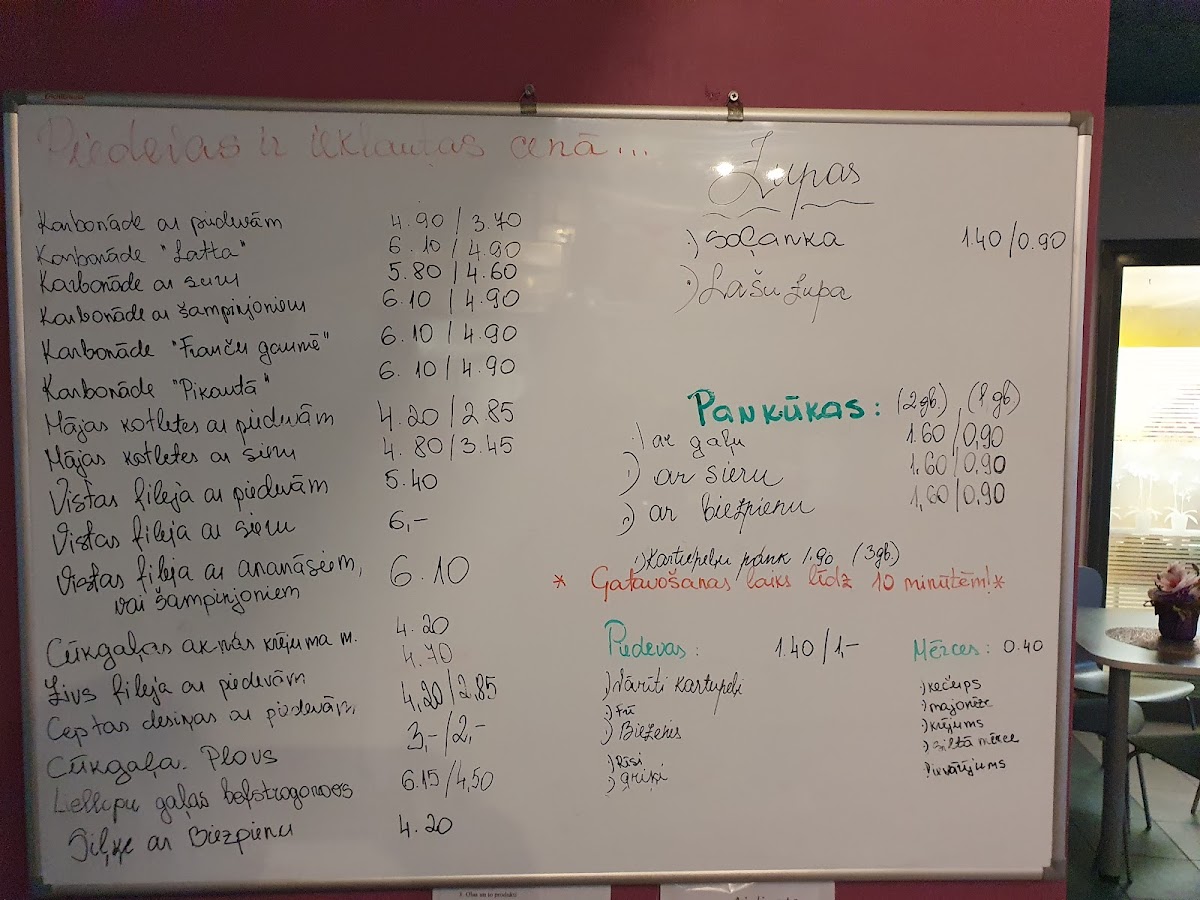 Piedevas ir iekļautas cenā...
Karbonāde ar piedevām 4.90/3.70
Karbonāde "Latta" 6.10/4.90
Karbonāde ar sieru 5.80/4.60
Karbonāde ar šampinjoniem 6.10/4.90
Karbonāde "Franču gaumē" 6.10/4.90
Karbonāde "Pikantā" 6.10/4.90
Mājas kotletes ar piedevām 4.20/2.85
Mājas kotletes ar sieru 4.80/3.45
Vistas fileja ar piedevām 5.40
Vistas fileja ar sieru 6,-
Vistas fileja ar ananāsiem, 6.10
vai šampinjoniem
Cūkgaļas aknas krējuma m. 4.20
Zivs fileja ar piedevām 4.70
Ceptas desiņas ar piedevām, 4,20/2,85
Cūkgaļa. Plovs 3,-/2,-
Liellopu gaļas befstrogonovs 6.15/4,50
Siļķe ar Biezpienu 4.20
Zupas
·) Soļanka 1.40/0.90
·) Lašu zupa
Pankūkas: (2gb.), (1gb)
·) ar gaļu 1.60/0,90
·) ar sieru 1.60/0.90
·) ar biezpienu 1,60/0,90
·) Kartupeļu pank 1.90 (3gb.)
* Gatavošanas laiks līdz 10 minūtēm!*
Piedevas: 1.40/1,-
·) Vārīti kartupeļi
·) Frī
·) Biezenis
·) Rīsi
·) Griķi
Mērces: 0.40
·) kečups
·) majonēze
·) krējums
·) Siltā mērce